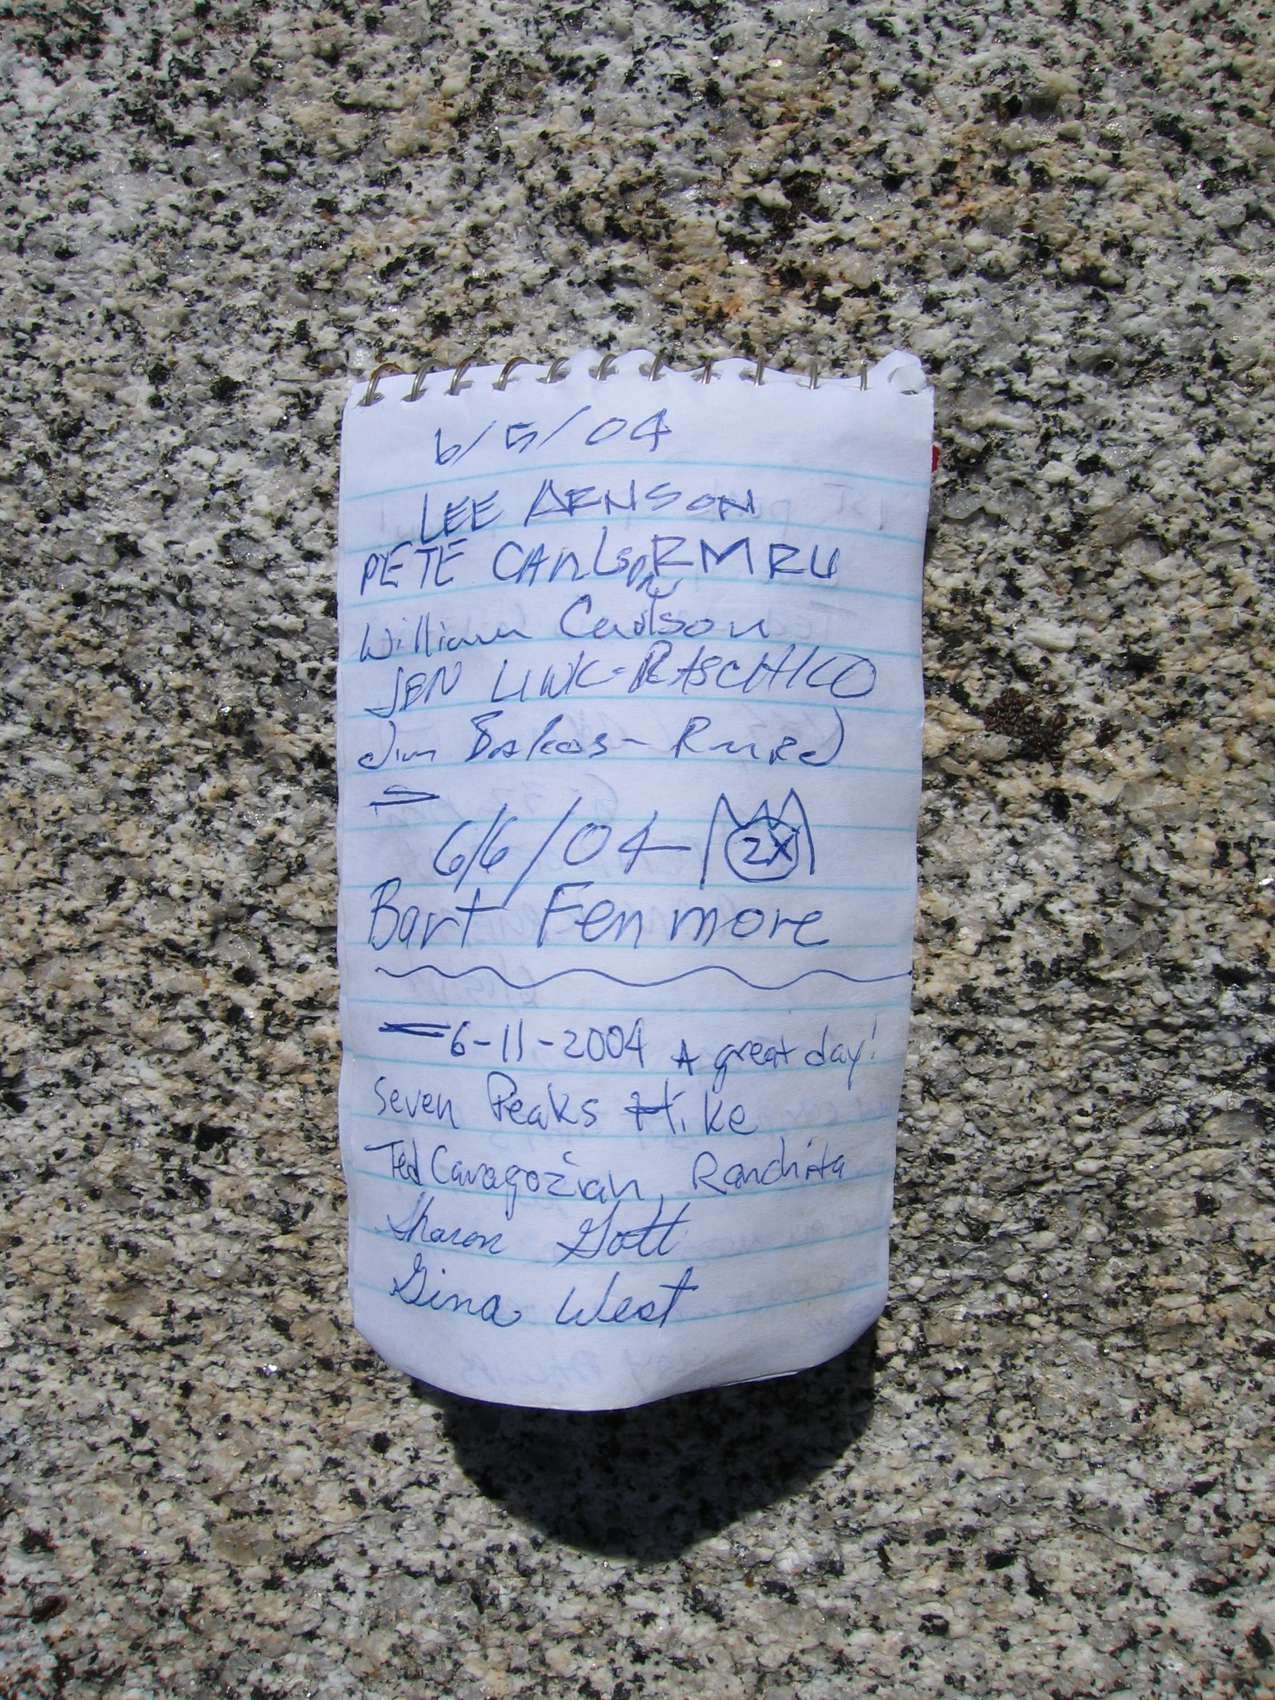 6/5/04
LEE ARNSON
PETE CARLSON RMRU
William Carlson
JEN LINK-RASCHKO
Jim
6/6/04 2X
Bart Fenmore
6-11-2004 A great day!
Seven Peaks Hike
Ted Caragozian, Ranchita
Sharon Gott
Gina West